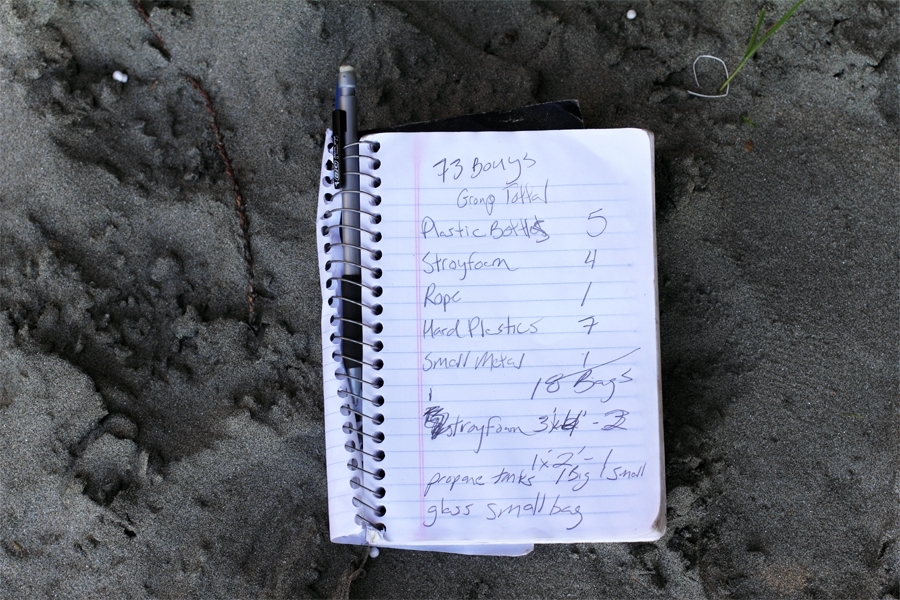 73 Bouys
Group Tottal
Plastic Bottles 5
Stroyfoam 4
Rope 1
Hard Plastics 7
Small Metal 1
18 Bags
stroyfoam 3'x4' - 2
1'x2' - 1
propane tanks 1 Big 1 Small
glass small bag